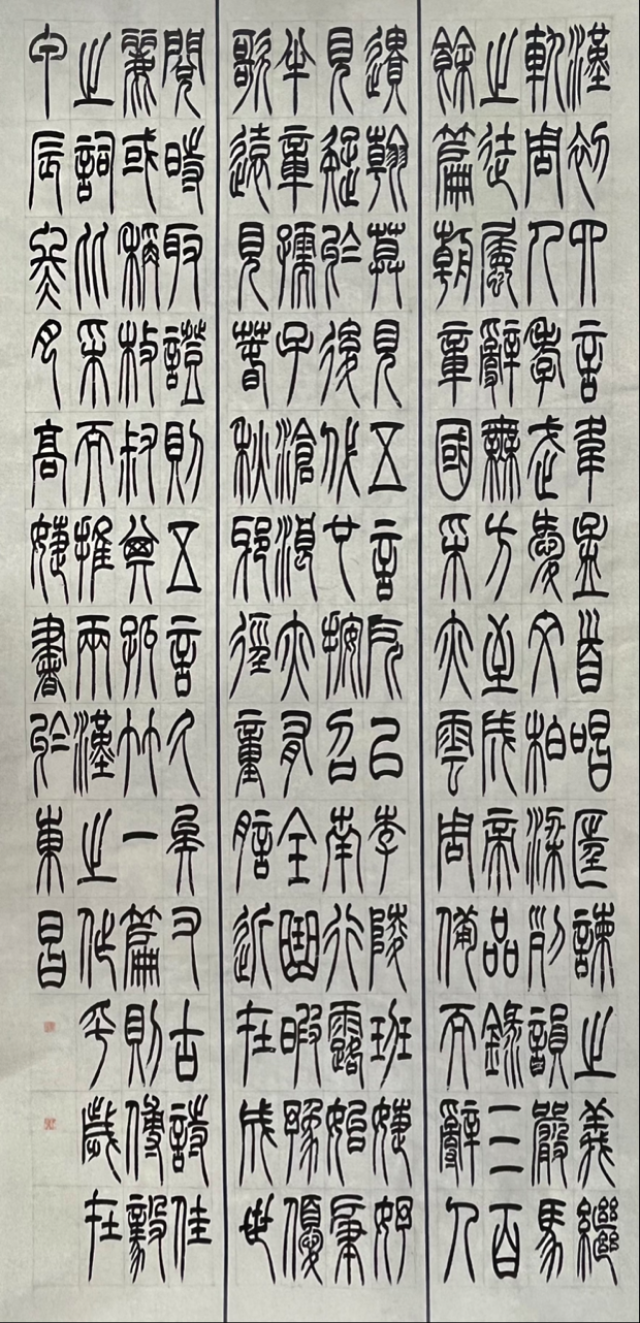 漢初四言韋孟首唱匡諫之義繼
軌周人孝武愛文柏梁列韻嚴馬
之徒屬辭無方至成帝品錄三百
餘篇朝章國采亦雲周備而辭人
遺翰莫見五言所以李陵班婕妤
見疑於後代也按召南行露始肇
半章孺子滄浪亦有全曲暇豫優
歌遠見春秋邪徑童謠近在成世
閱時取證則五言久矣又古詩佳
麗或稱枚叔其孤竹一篇則傅毅
之詞比采而推兩漢之作乎歲在
甲辰癸月高婕書於東昌